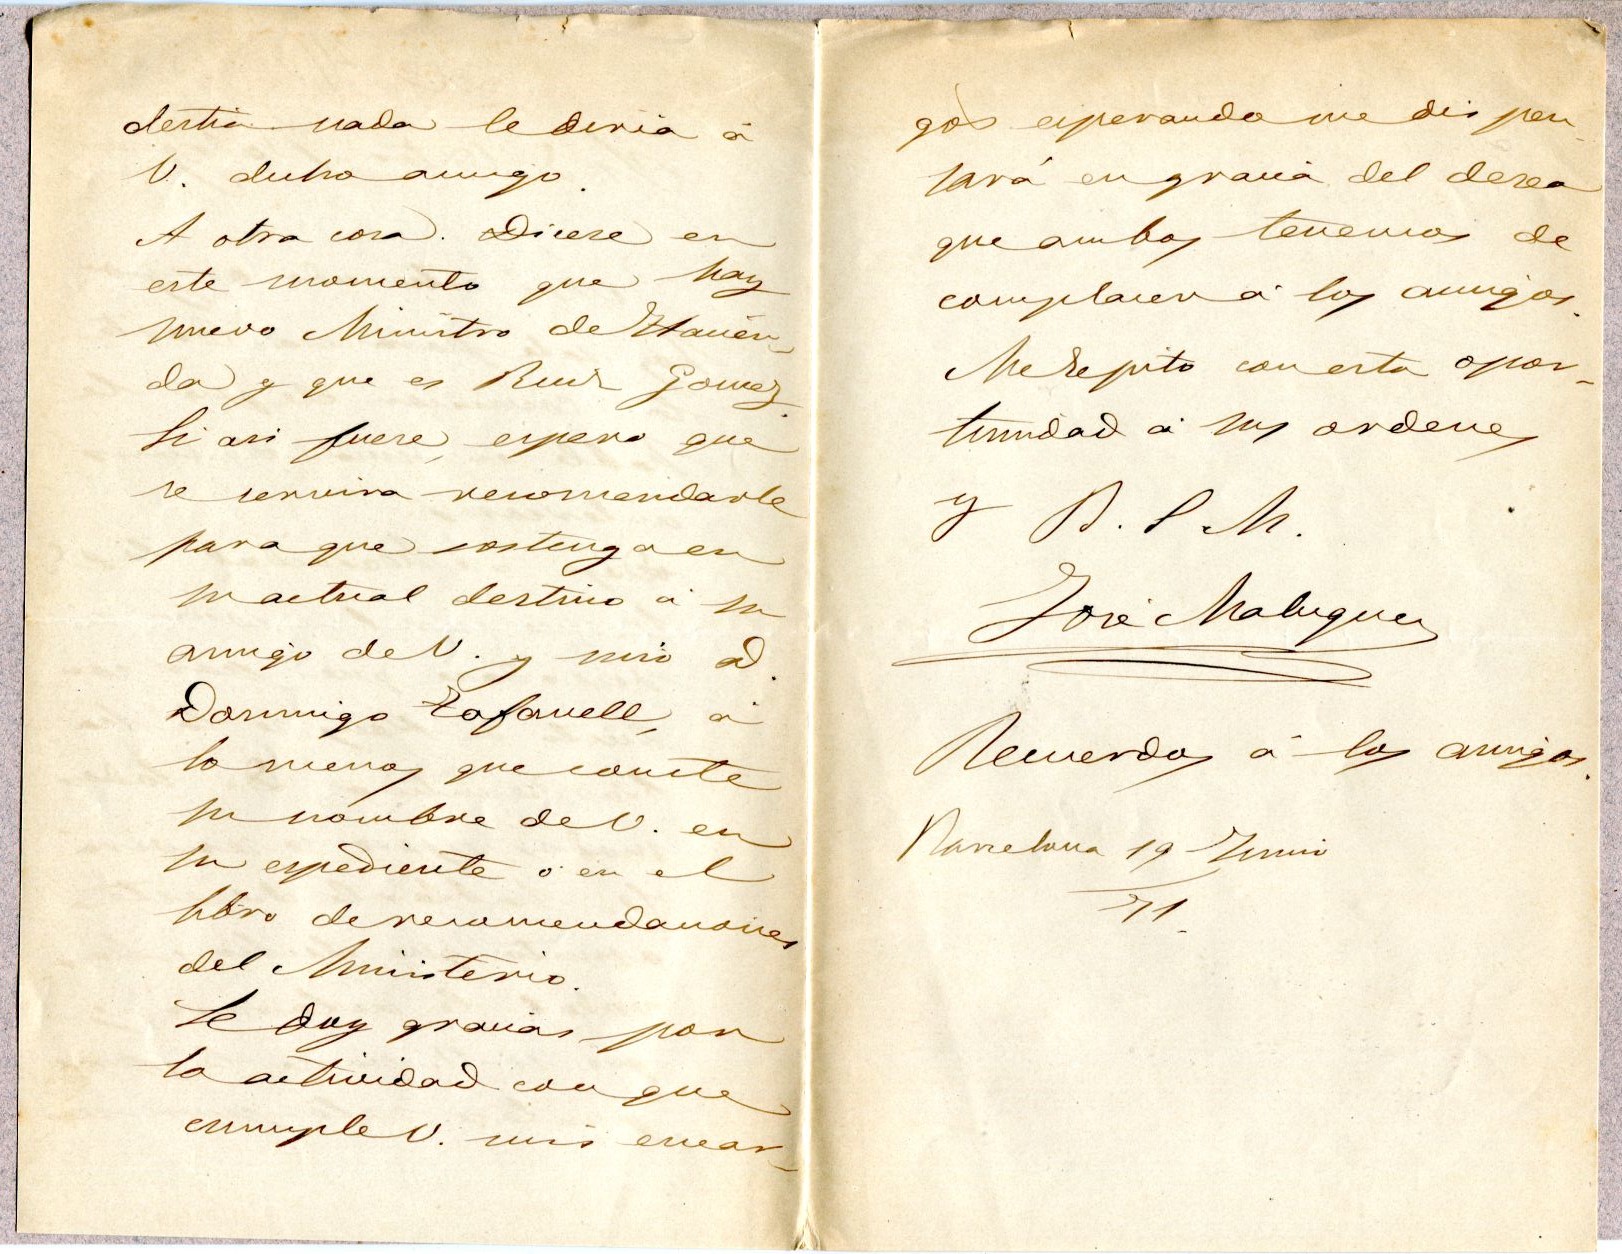 destia nada le diria á
V. dicho amigo.
A otra cosa. Dicese en
este momento que hay
nuevo Ministro de Hacien-
da y que es Ruiz Gomez.
Si asi fuere, espero que
se servira recomendarle
para que sostenga en
su actual destino á su
amigo de V. y mio D.
Domingo Tafanell, á
lo menos que conste
su nombre de V. en
su espediente o en el
libro de recomendaciones
del Ministerio.
Le doy gracias por
la actividad con que
cumple V. mis encar-
gos esperando me dispen-
sará en gracia del deseo
que ambos tenemos de
complacer á los amigos.
Me repito con esta opor-
tunidad á sus ordenes
y B. S. M.
José Maluquer
Recuerdos á los amigos.
Barcelona 19 Junio
71.